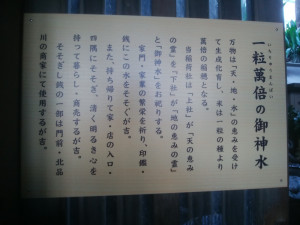 いちりゅうまんばい
一粒萬倍の御神水
万物は「天・地・水」の恵みを受け
て生成化育し、米は一粒の種より
萬倍の稲穂となる。
当稲荷社は「上社」が「天の恵み
の霊」を「下社」が「地の恵みの霊」
と「御神水」をお祀りする。
家門・家業の繁栄を祈り、印鑑・
銭にこの水をそそぐが吉。
また、持ち帰りて家・店の入口・
四隅にそそぎ、清く明るき心を
持って暮らし、商売するが吉。
そそぎし銭の一部は門前・北品
川の商家にて使用するが吉。